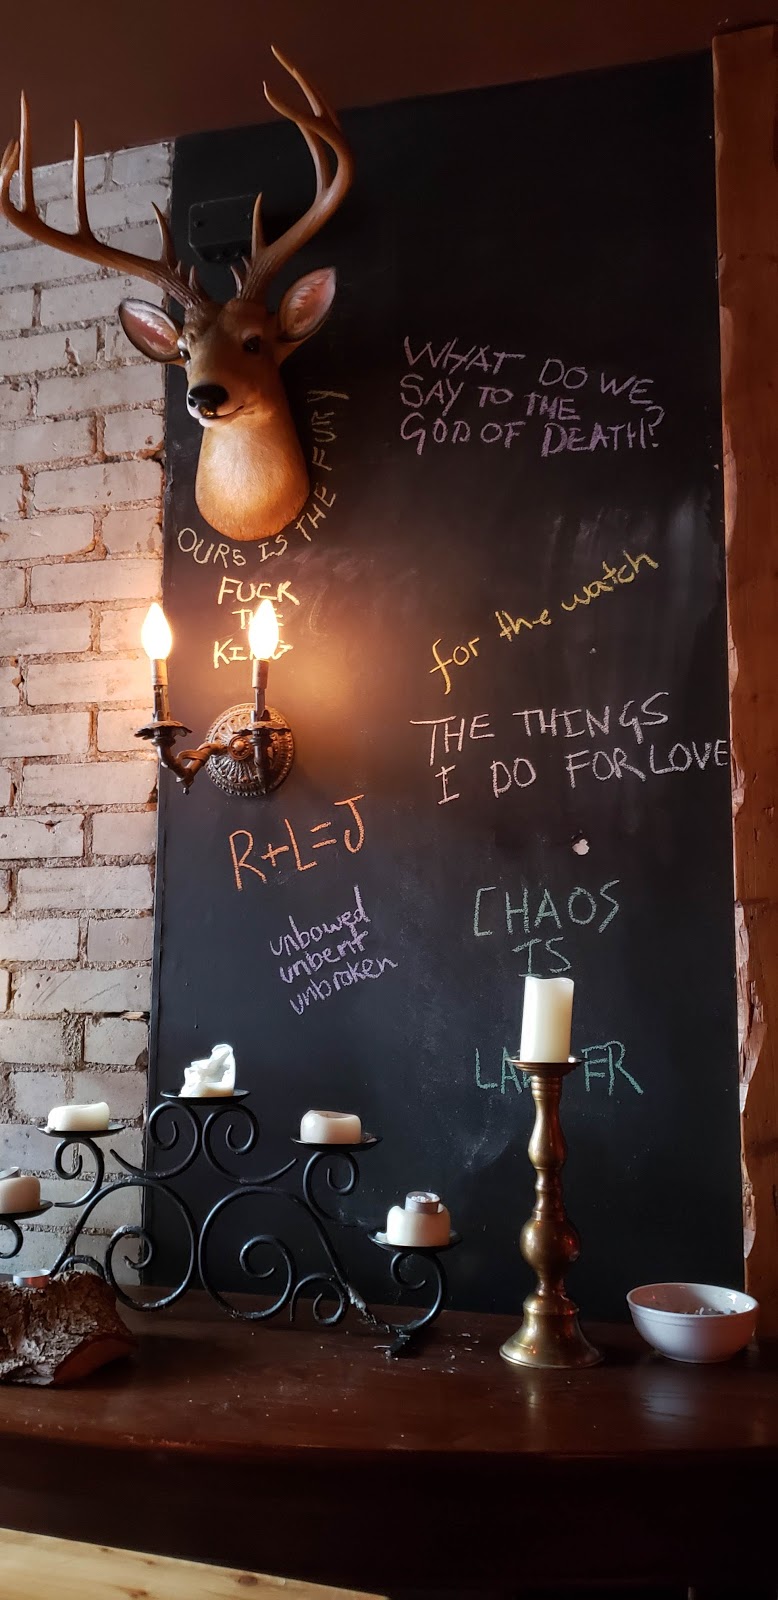 WHAT DO WE
SAY TO THE
GOD OF DEATH?
OURS IS THE FURY
FUCK
THE
KING
for the watch
THE THINGS
I DO FOR LOVE
R+L=J
unbowed
unbent
unbroken
CHAOS
IS